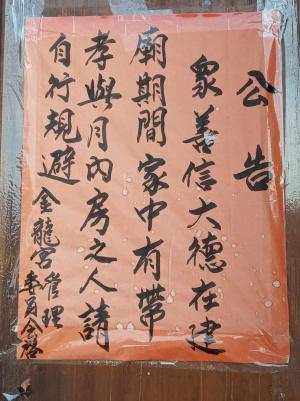 公告
眾善信大德在建
廟期間家中有帶
孝與月內房之人請
自行規避金龍宮管理
委員会啓